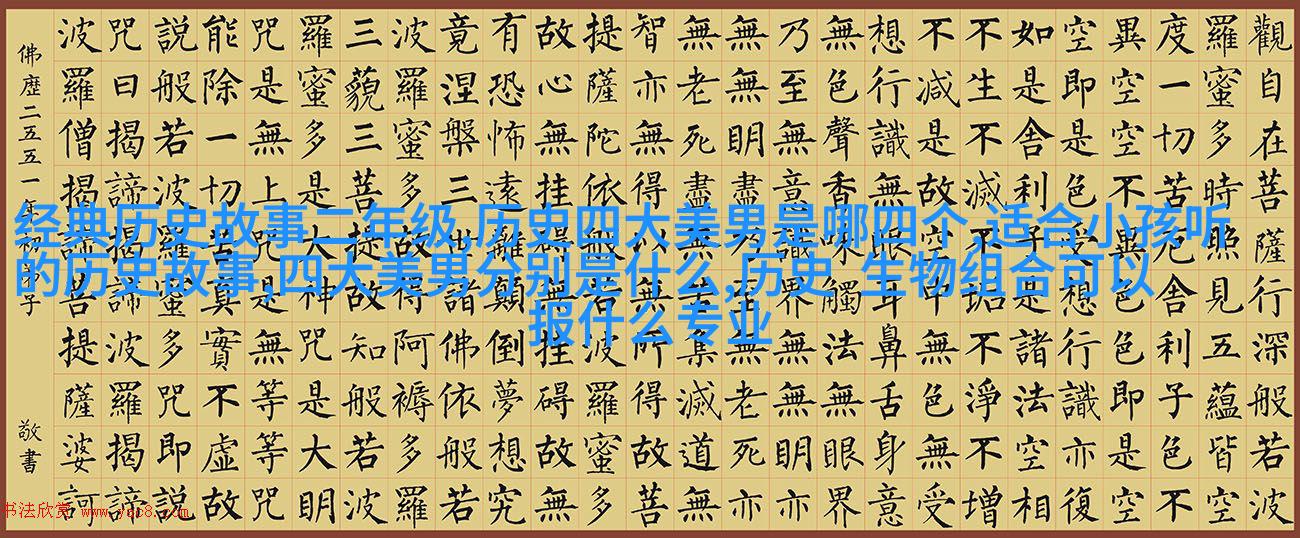 觀自在菩薩行深般若波
羅蜜多時照見五蘊皆空
度一切苦厄舍利子色不
異空空不異色色即是空
空即是色受想行識亦復
如是舍利子是諸法空相
不生不滅不垢不淨不增
不減是故空中無色無受
想行識無眼耳鼻舌身意
無色聲香味觸法無眼界
乃至無意識界無無明亦
無無明盡乃至無老死亦
無老死盡無苦集滅道無
智亦無得以無所得故菩
提薩陀依般若波羅蜜多
故心無挂礙無挂礙故無
有恐怖遠離顛倒夢想究
竟涅槃三世諸佛依般若
波羅蜜多故得阿褥多羅
三藐三菩提故知般若波
羅蜜多是大神咒是大明
咒是無上咒是無等等咒
能除一切苦真實不虛故
說般若波羅蜜多咒即說
咒曰揭諦揭諦波羅揭諦
波羅僧揭諦菩提薩婆訶
佛歷二五五一年 弟子 敬書
经典历史故事二年级,历史四大美男是哪四个,适合小孩听
的历史故事,四大美男分别是什么,历史 生物组合可以
报什么专业
书法欣赏 www.yac8.com